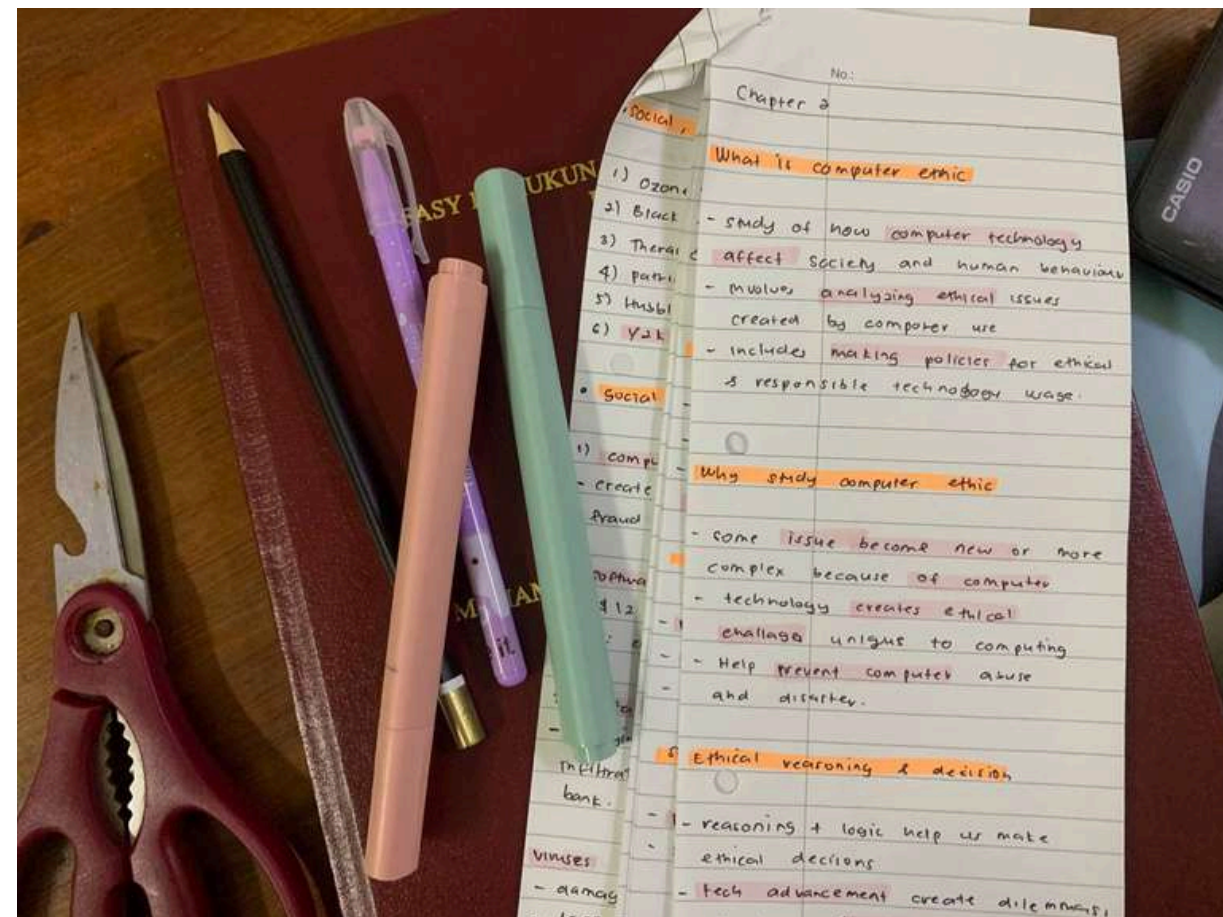 No.:
Chapter 2
What is computer ethic
- study of how computer technology
affect society and human behaviour
- involves analyzing ethical issues
created by computer use
- includes making policies for ethical
& responsible technology usage.
Why study computer ethic
- some issue become new or more
complex because of computer
- technology creates ethical
challage uniqus to computing
- Help prevent computer abuse
and disaster.
Ethical reasoning & decision
- reasoning + logic help us make
ethical decions
- tech advancement create dilemmas,
• social,
1) Ozone
2) Black
3) Therac
4) patri
5) Hubbl
6) Y2K
• Social
1) compu
- create
fraud
$12
infiltrat
bank.
viruses
- damag
EASY
UKUN
CASIO